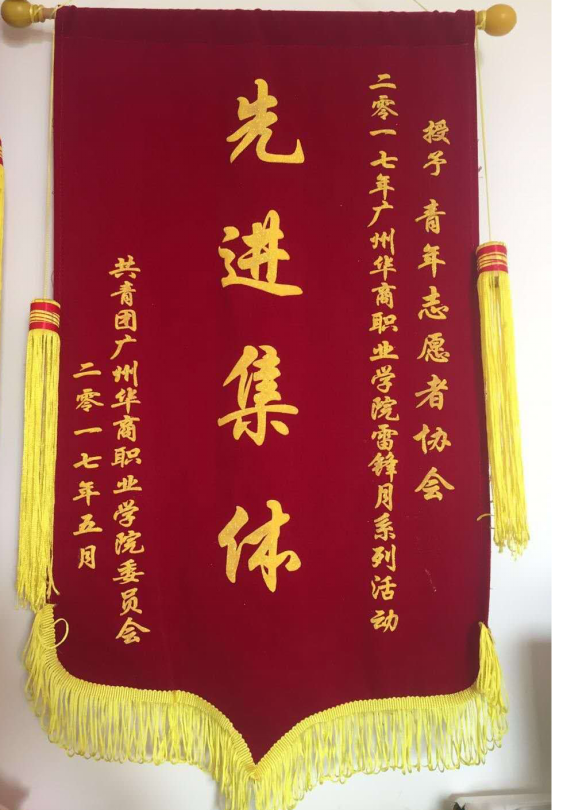 授予 青年志愿者协会
二零一七年广州华商职业学院雷锋月系列活动
先进集体
共青团广州华商职业学院委员会
二零一七年五月